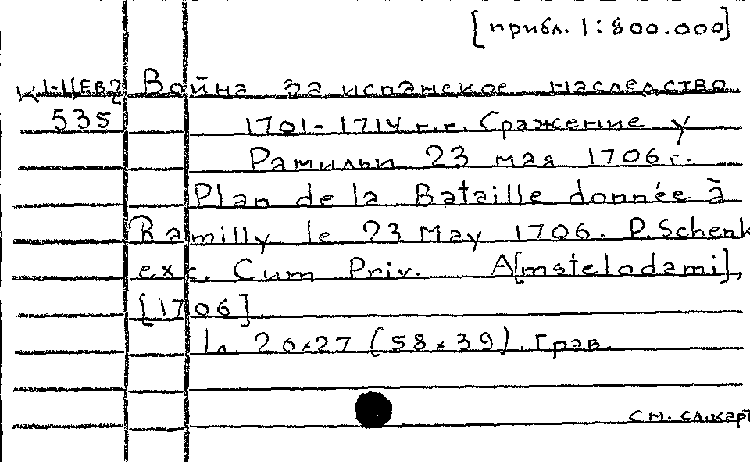 [прибл. 1:800.000]
К1-ЦЕВ2 Война за испанское наследство
535 1701-1714 г.г. Сражение у
Рамильи 23 мая 1706г.
Plan de la Bataille donnée à
Ramilly le 23 May 1706. P. Schenk
exc. Cum Priv. A[mstelodami],
[1706]
1л. 26×27 (58×39). Грав.
см. сл. карт